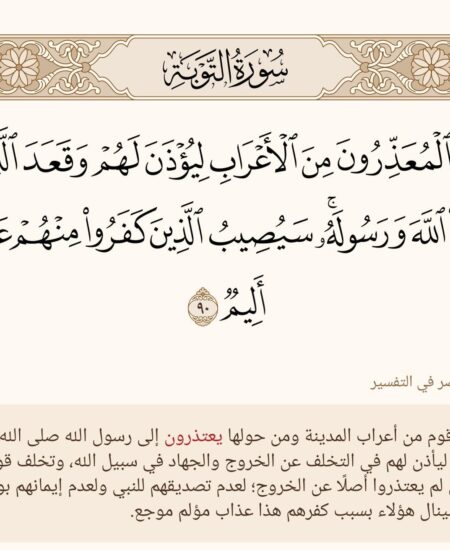 سُورَةُ التَّوْبَةِ
ٱلْمُعَذِّرُونَ مِنَ ٱلْأَعْرَابِ لِيُؤْذَنَ لَهُمْ وَقَعَدَ
ٱللَّهَ وَرَسُولَهُۥۚ سَيُصِيبُ ٱلَّذِينَ كَفَرُواْ مِنْهُمْ
أَلِيمٌ ٩٠
في التفسير
قوم من أعراب المدينة ومن حولها يعتذرون إلى رسول الله صلى الله
ليأذن لهم في التخلف عن الخروج والجهاد في سبيل الله، وتخلف
لم يعتذروا أصلًا عن الخروج؛ لعدم تصديقهم للنبي ولعدم إيمانهم
هؤلاء بسبب كفرهم هذا عذاب مؤلم موجع.